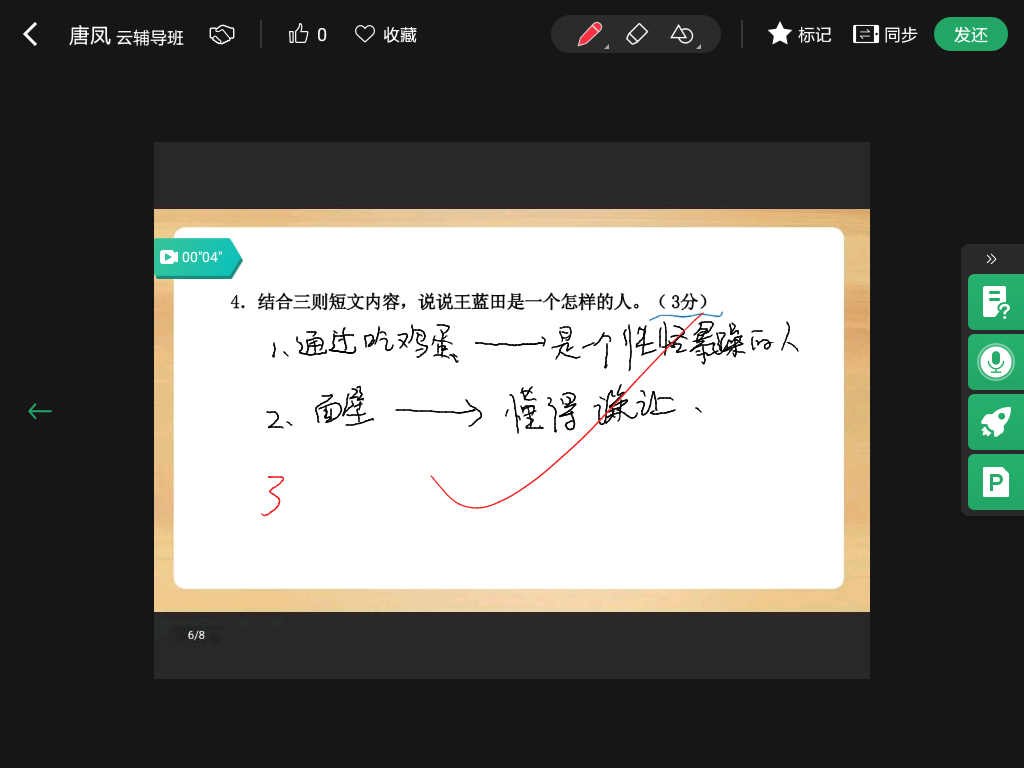 唐凤 云辅导班 0 收藏 标记 同步 发还
00"04"
4. 结合三则短文内容，说说王蓝田是一个怎样的人。（3分）
1、通过吃鸡蛋 → 是一个性格暴躁的人
2、面壁 → 懂得谦让、
3
P
6/8